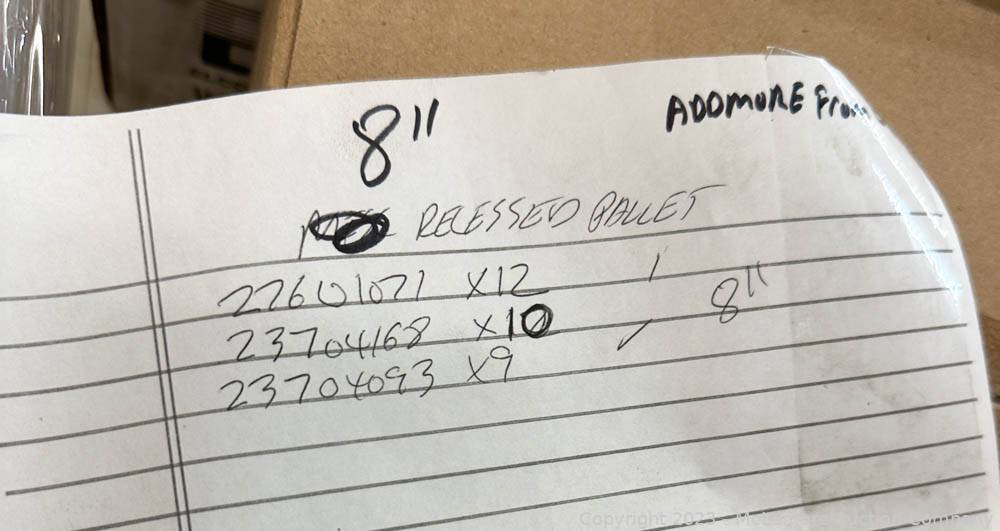 8"
ADDMORE From
RECESSED PALLET
22601071 X12
23704168 X10
8"
23704093 X9
Copyright 2023